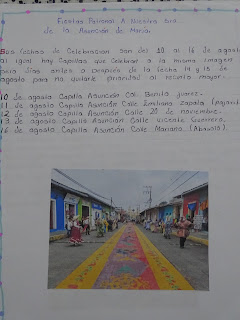 Fiestas Patronal A Nuestra Sra.
de la Asunción de María.
Las fechas de Celebracion son del 10 al 16 de agosto
al igual hay Capillas que Celebran a la misma imagen
pero días antes o después de la fecha 14 y 15 de
agosto para no quitarle prioridad al recinto mayor.
10 de agosto Capilla Asunción Col. Benito Juarez.
11 de agosto Capilla Asunción Calle Emiliano Zapata
12 de agosto Capilla Asunción Calle 20 de noviembre.
13 de agosto Capilla Asunción Calle Vicente Guerrero.
16 de agosto Capilla Asunción Calle Mariano (Abasolo).